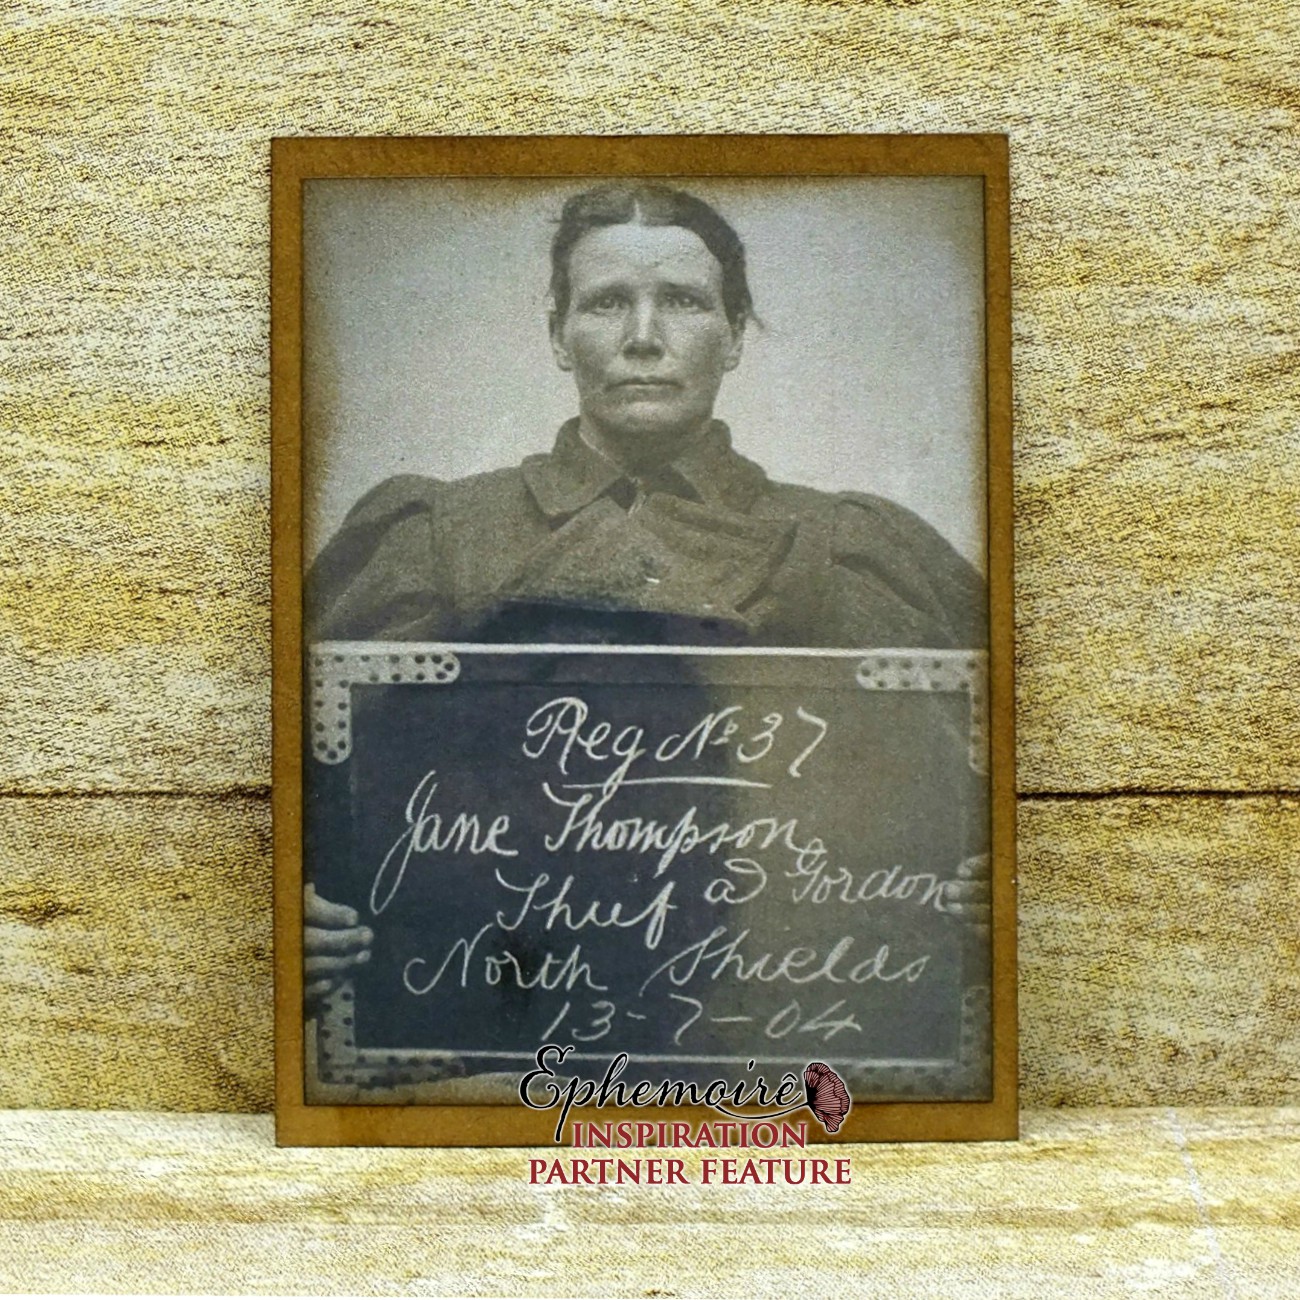 Reg № 37
Jane Thompson
a Gordon
Thief
North Shields
13-7-04
Ephemoirê
INSPIRATION
PARTNER FEATURE